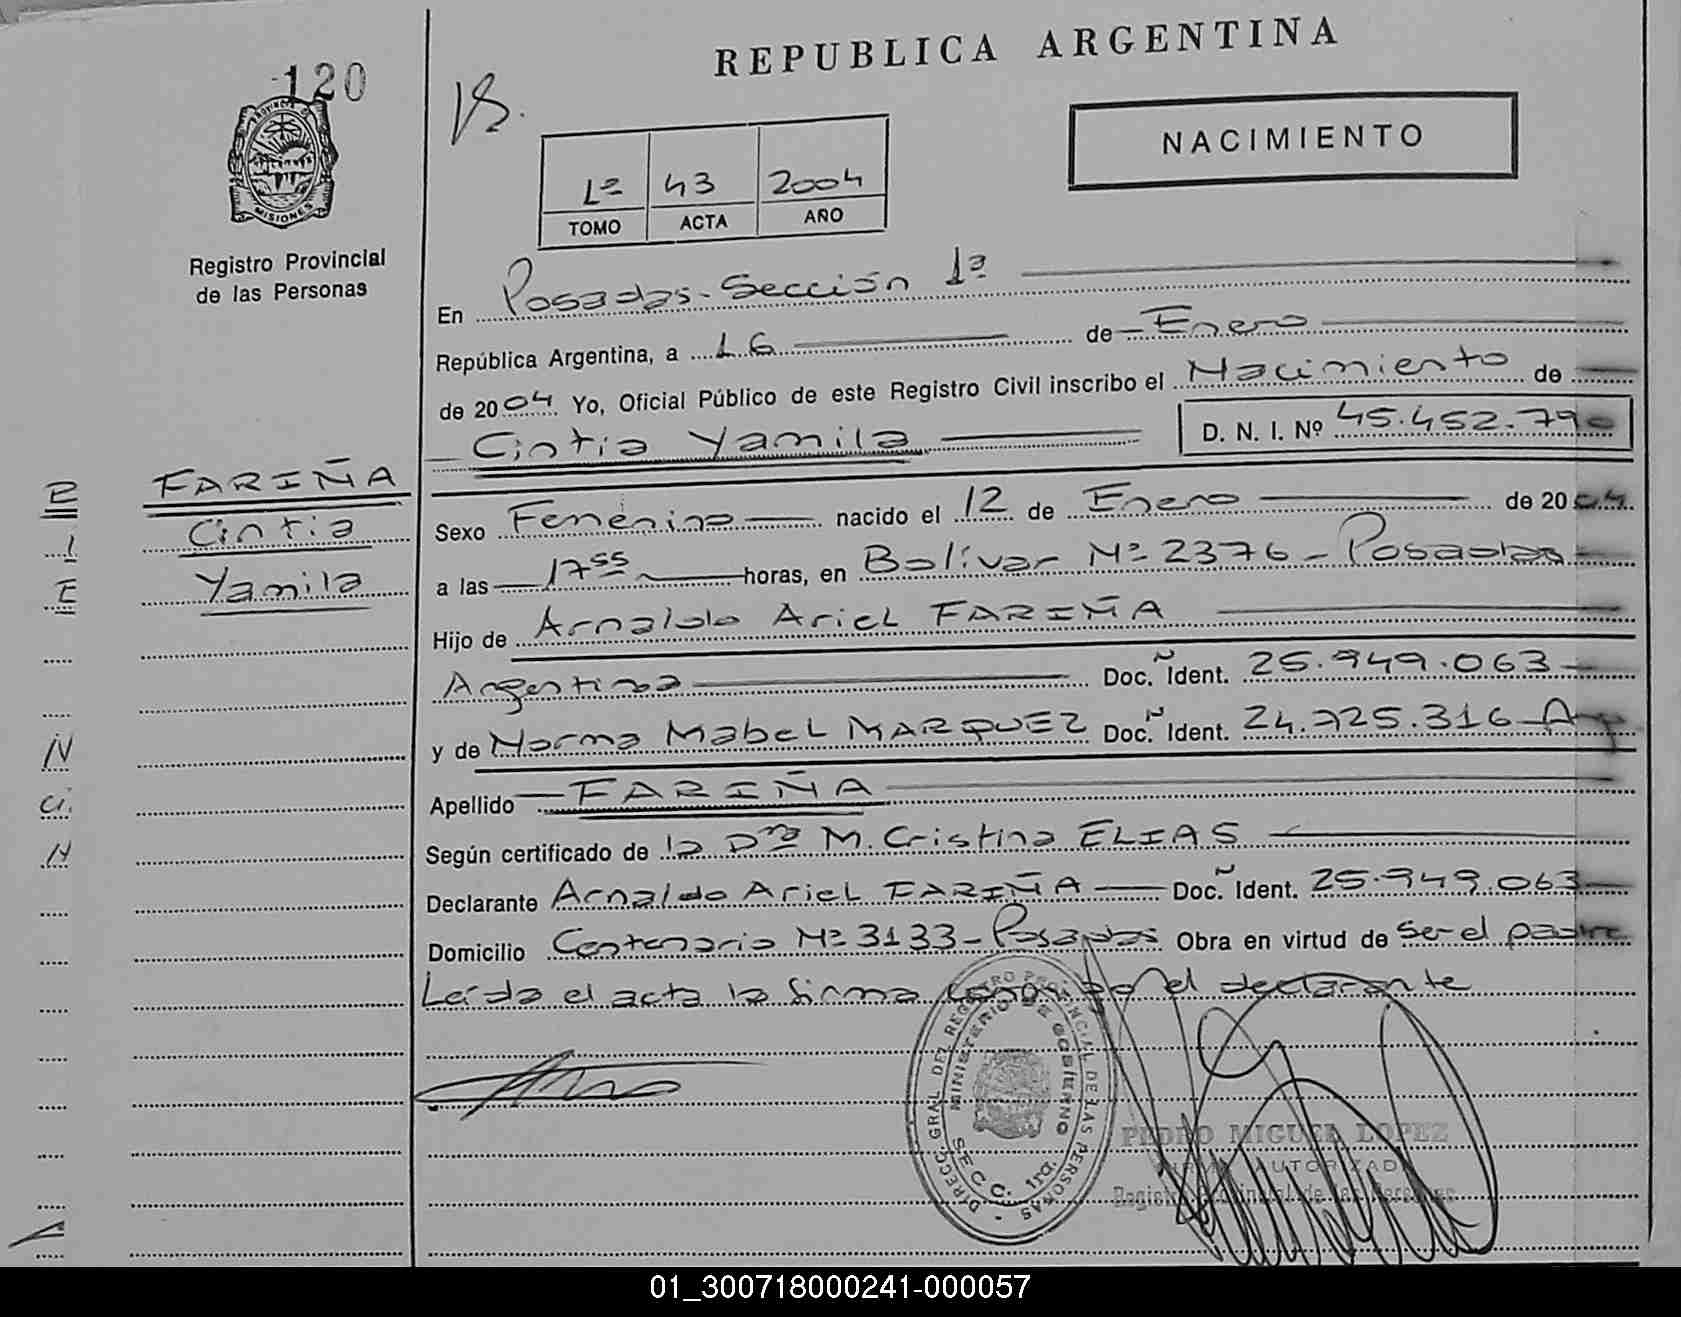 120
PROVINCIA
MISIONES
Registro Provincial
de las Personas
REPUBLICA ARGENTINA
NACIMIENTO
1º 43 2004
TOMO ACTA AÑO
En Posadas - Sección 1ª
República Argentina, a 16 de Enero
de 2004 Yo, Oficial Público de este Registro Civil inscribo el Nacimiento de
Cintia Yamila D. N. I. Nº 45.452.790
FARIÑA
Cintia
Yamila
Sexo Femenino nacido el 12 de Enero de 2004.
a las 17 55 horas, en Bolívar Nº 2376 - Posadas
Hijo de Arnaldo Ariel FARIÑA
Argentina Doc. Ñ Ident. 25.949.063
y de Norma Mabel MARQUEZ Doc. Ñ Ident. 24.725.316 - Arg
Apellido FARIÑA
Según certificado de la Dra M. Cristina ELIAS
Declarante Arnaldo Ariel FARIÑA Doc. Ident. 25.949.063
Domicilio Centenario Nº 3133 - Posadas Obra en virtud de ser el padre
Leída el acta la firma el declarante
DIRECC. GRAL DEL REGISTRO PROVINCIAL DE LAS PERSONAS
MINISTERIO DE GOBIERNO
SECC. 1ra.
PEDRO MIGUEL LOPEZ
FIRMA AUTORIZADA
Registro Provincial de las Personas
01_300718000241-000057